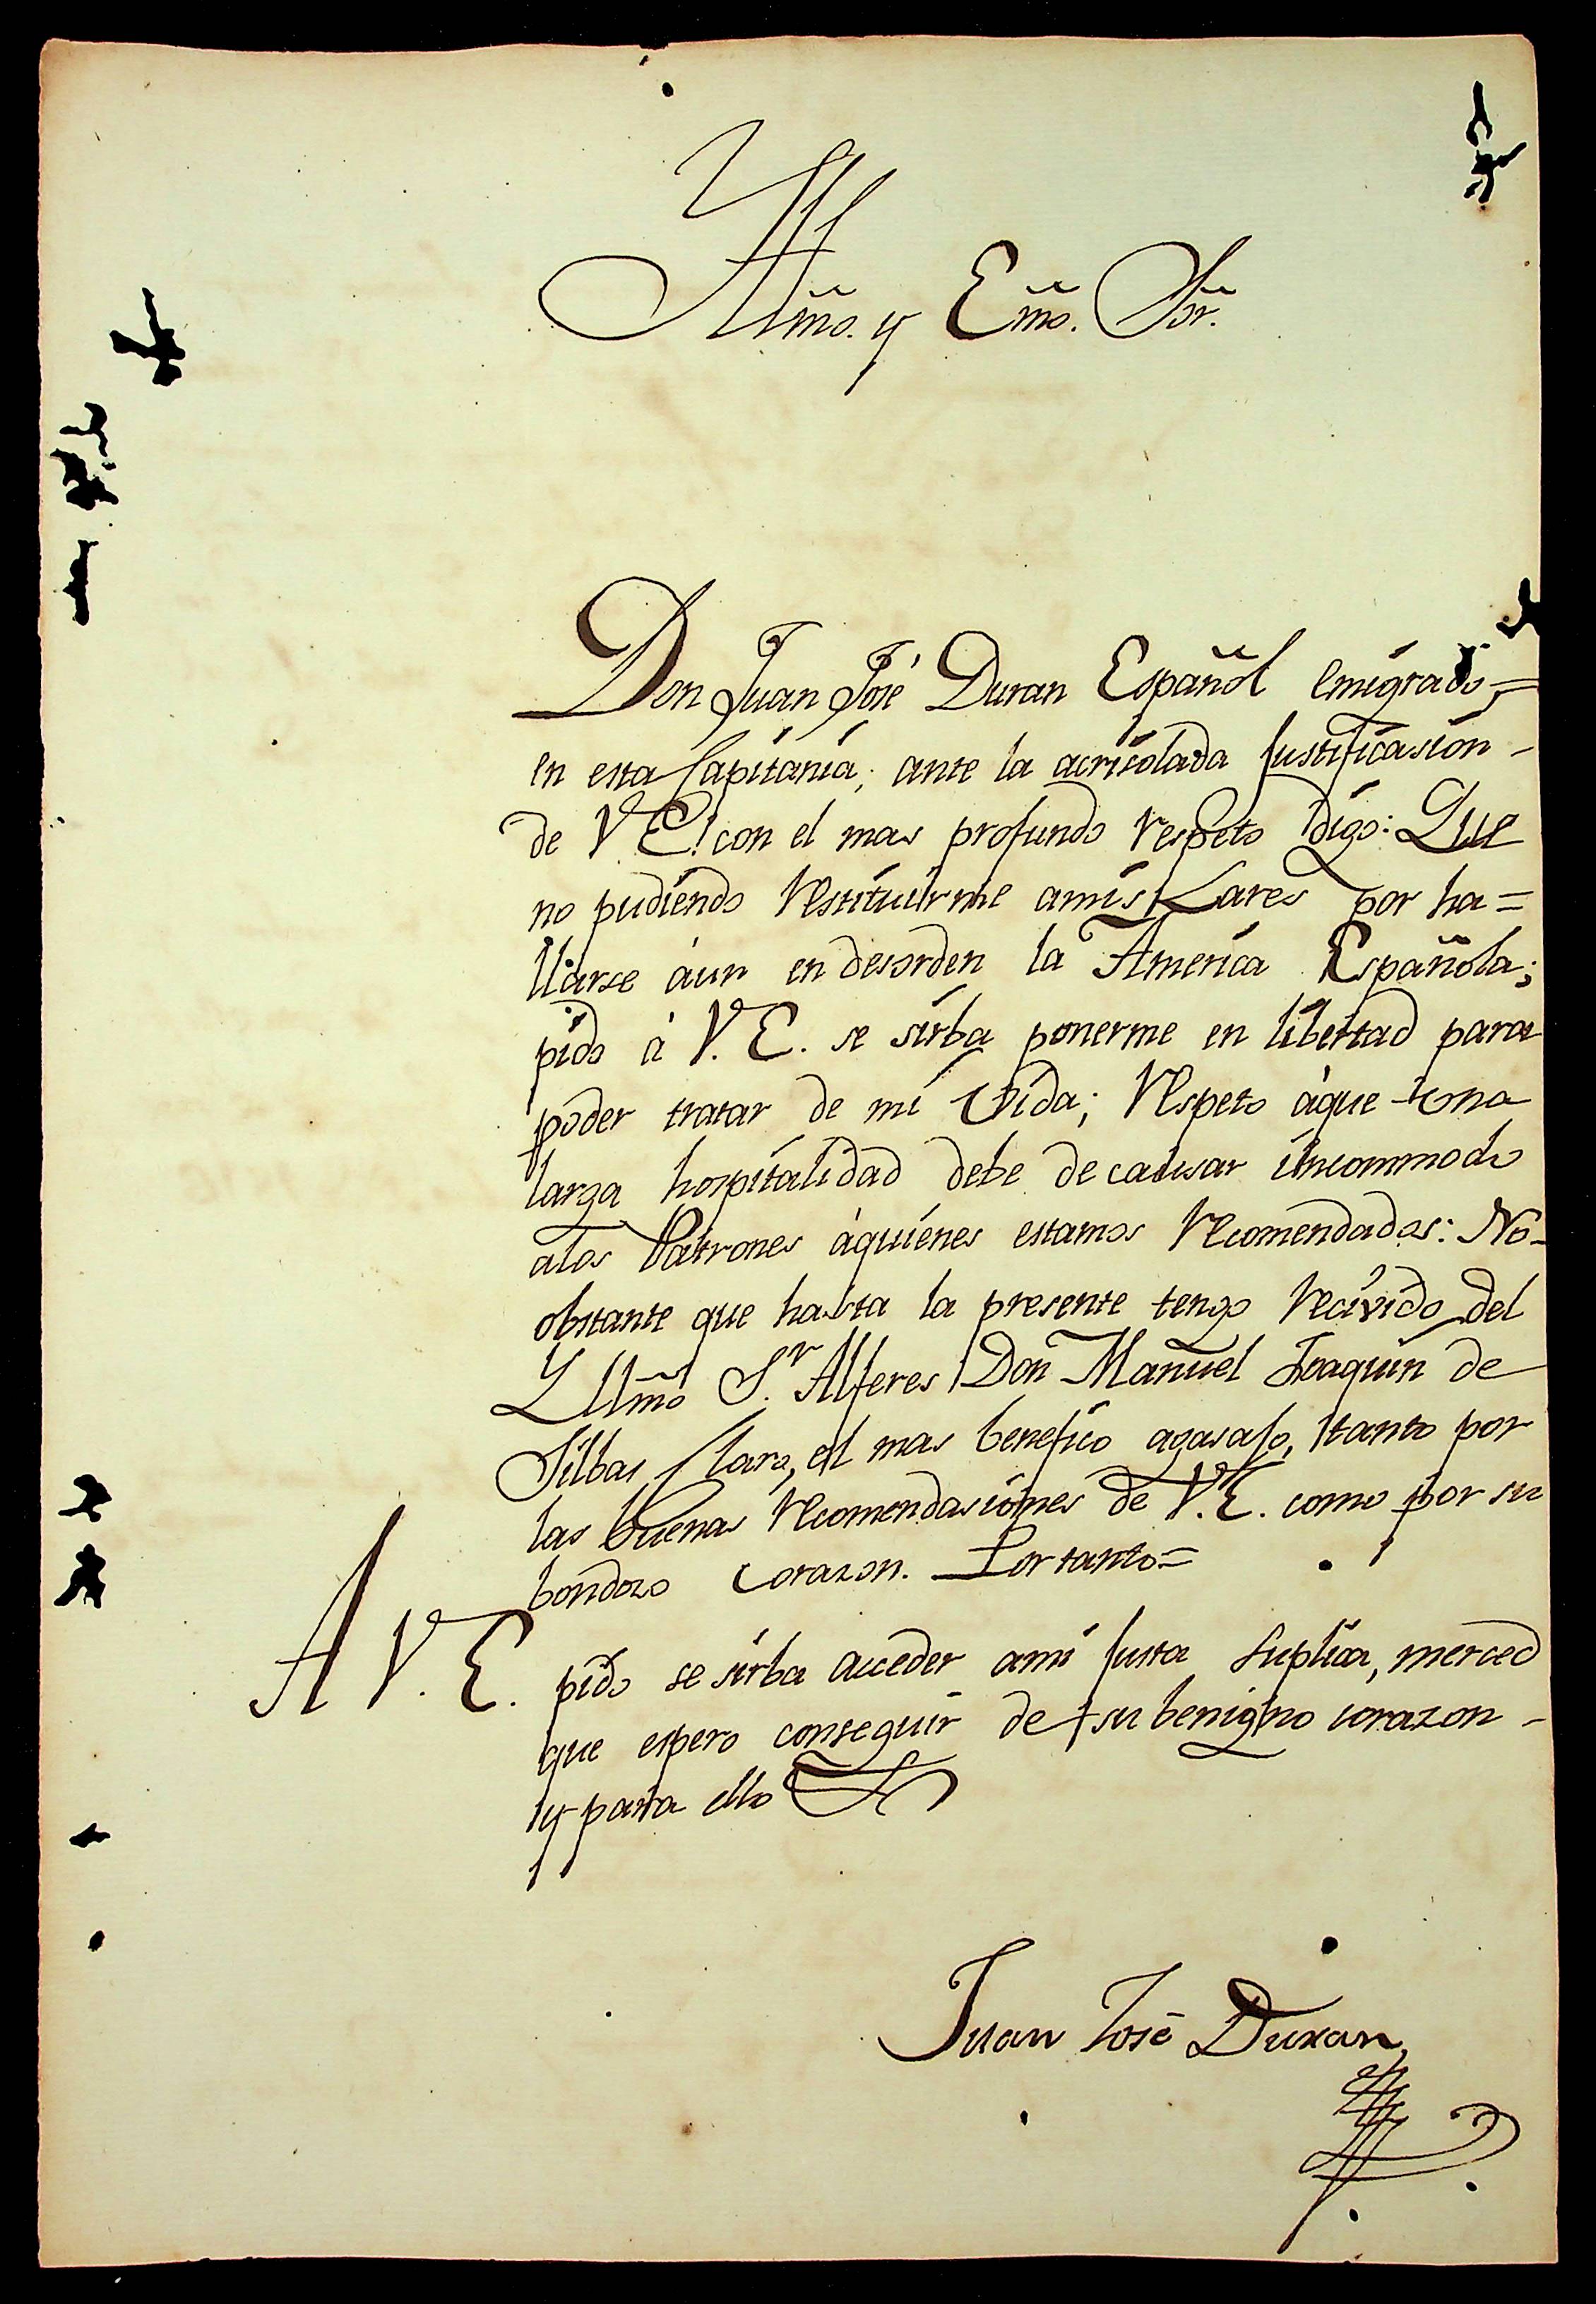 Yllmo. y Emõ. Sõr.
Don Juan José Duran Español emigrado=
en esta Capitania; ante la acrisolada justificasion-
de V. E. con el mas profundo respeto digo: Que
no pudiendo restituirme amis Lares por ha=
llarse áun en desorden la América Española;
pido á V. E. se sirba ponerme en libertad para
poder tratar de mi vida; respeto áque una
larga hospitalidad debe de causar incommodo
alos Patrones áquienes estamos recomendados: No-
obstante que hasta la presente tengo recivido del
Yllmõ Sr. Alferes Don Manuel Joaquin de
Silbas Claro, el mas benefico agasajo, tanto por
las buenas recomendasiones de V. E. como por su
bondozo corazon. Portanto=
A V. E. pido se sirba acceder ami justa suplica, merced
que espero conseguir de su benigno corazon-
y para ello
Juan José Duran